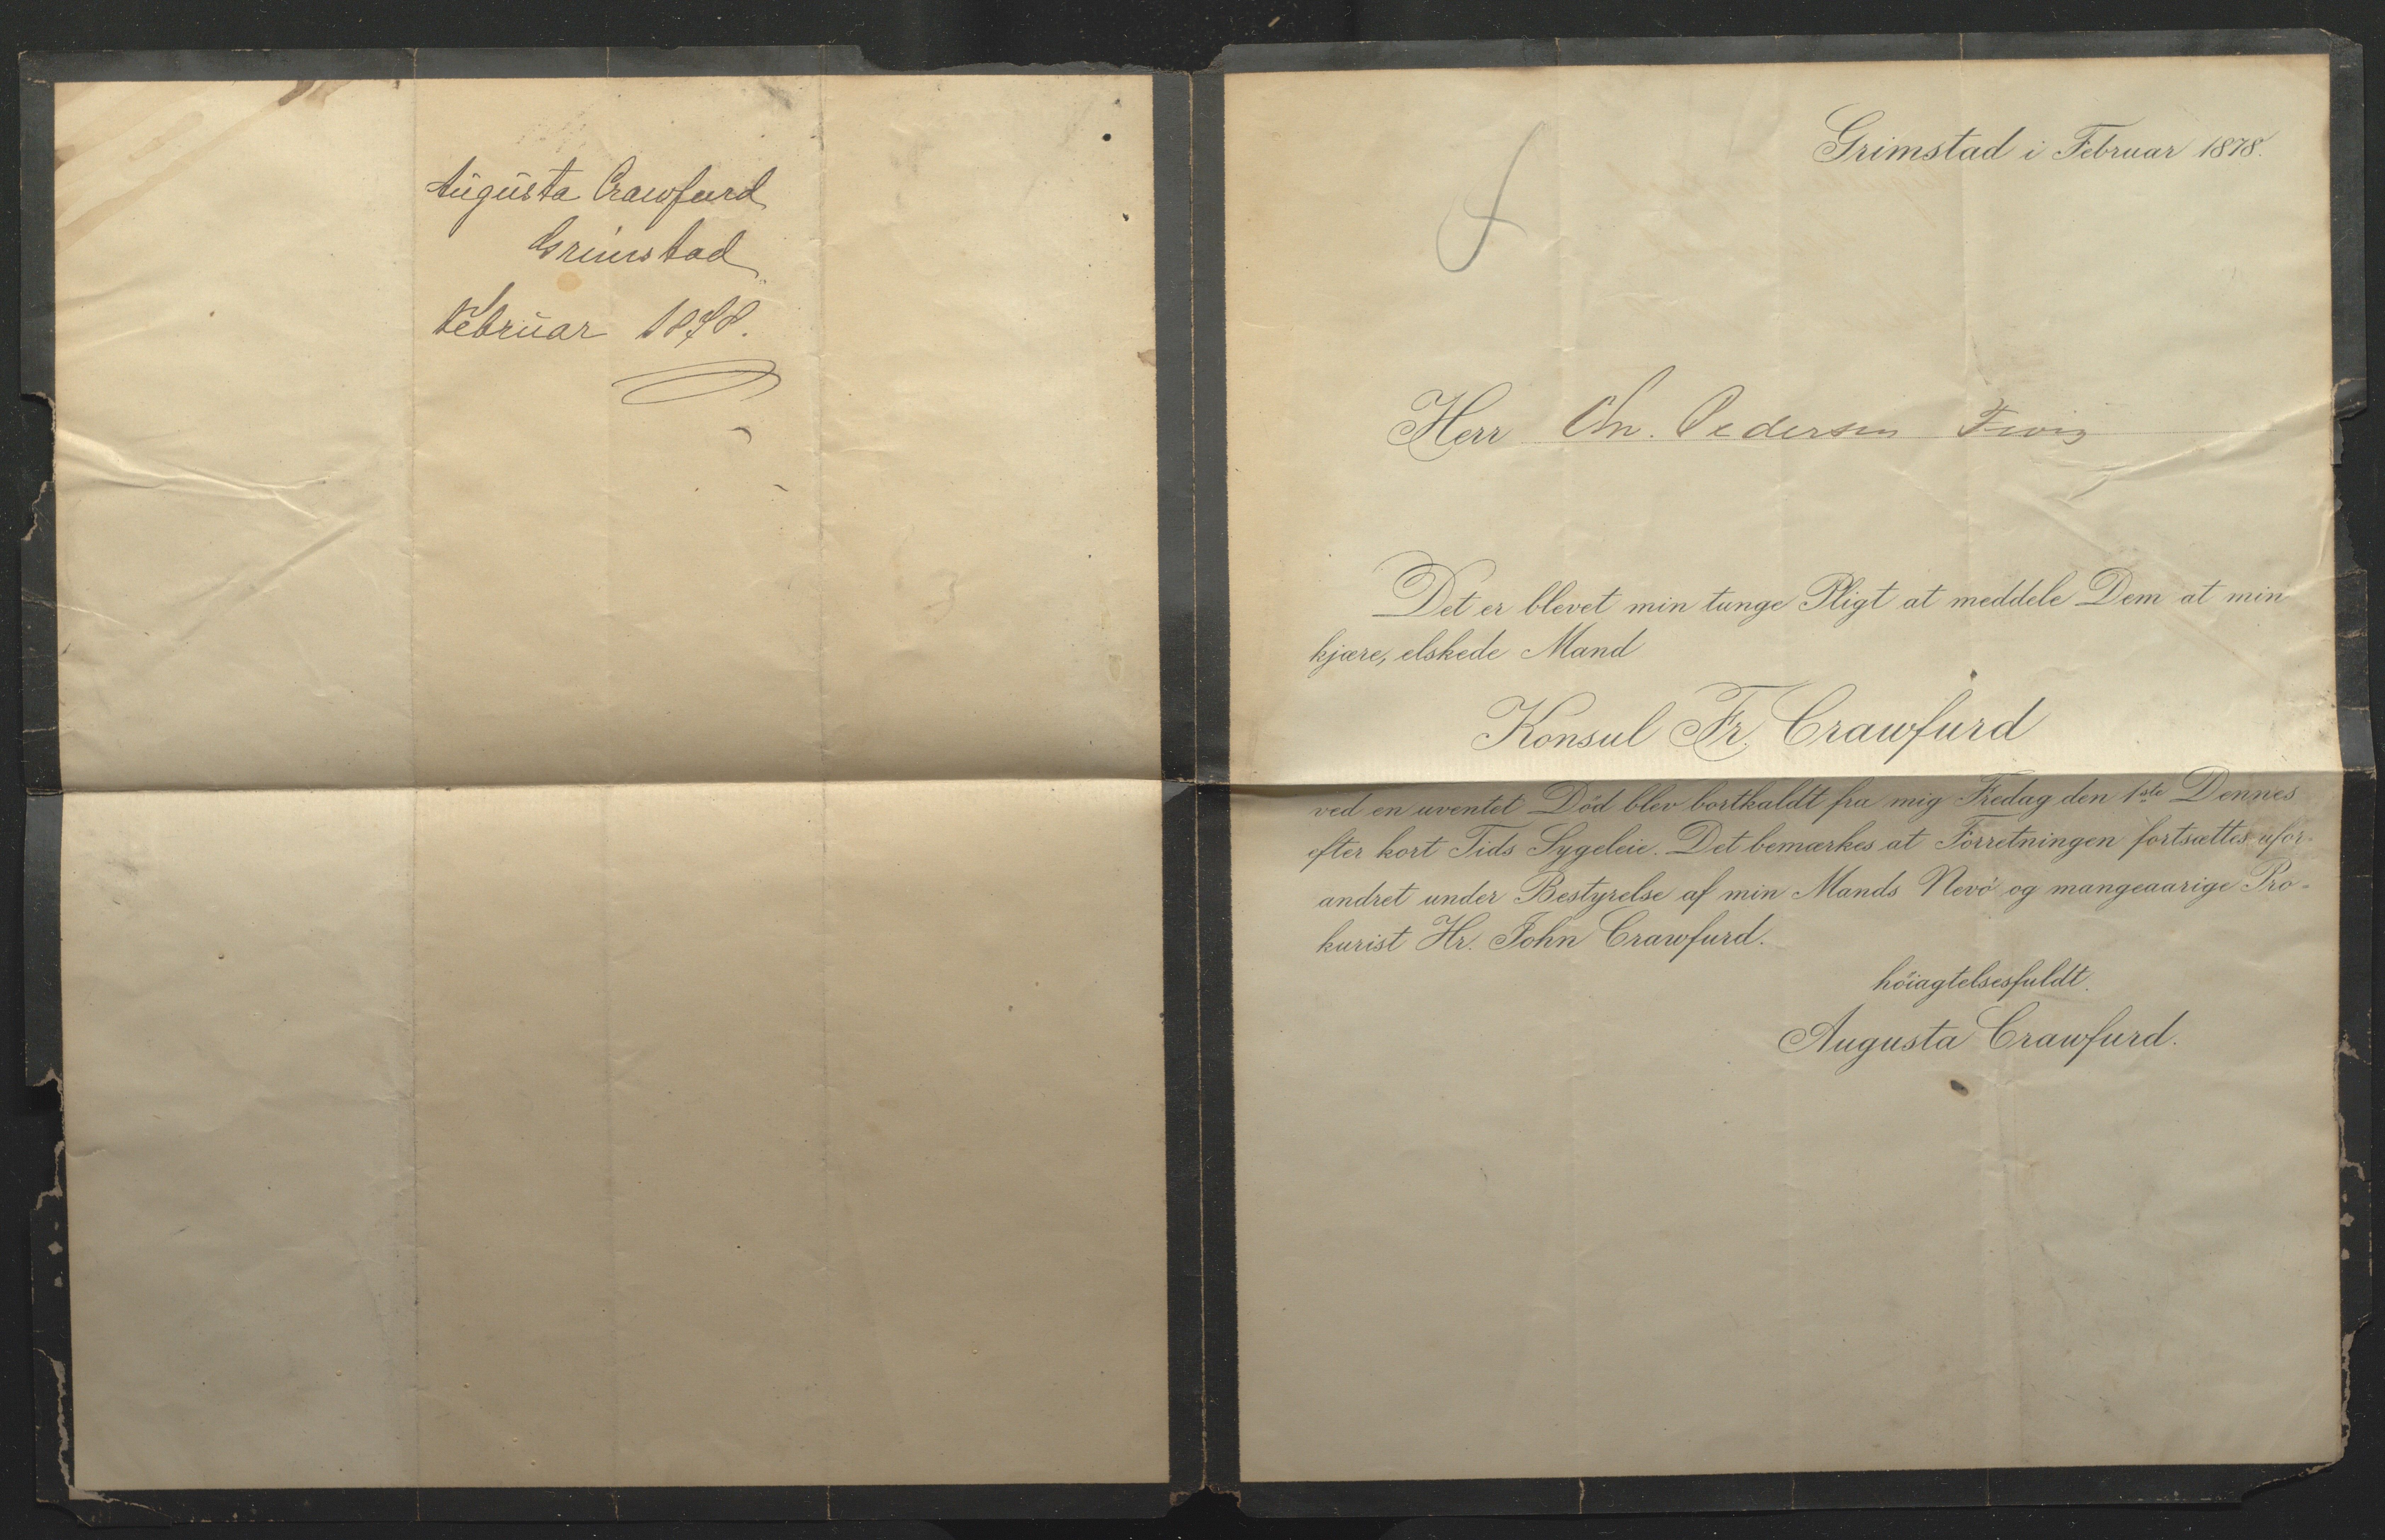 Augusta Crawfurd
Grimstad
Februar 1878.
Grimstad i Februar 1878.
Herr Chr. Pedersen Fevig
Det er blevet min tunge Pligt at meddele Dem at min
kjære, elskede Mand
Konsul Fr. Crawfurd
ved en uventet Död blev bortkaldt fra mig Fredag den 1ste Dennes
efter kort Tids Sygeleie. Det bemærkes at Forretningen fortsættes ufor-
andret under Bestyrelse af min Mands Nevö og mangeaarige Pro-
kurist Hr. John Crawfurd.
höiagtelsesfuldt.
Augusta Crawfurd.